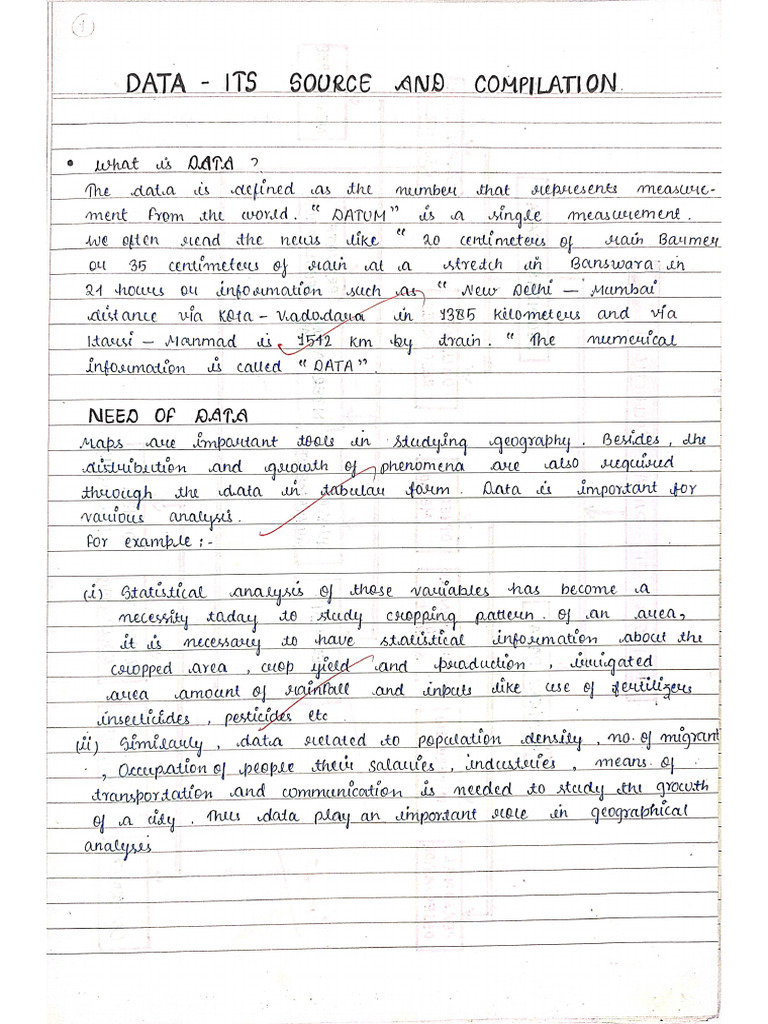 1
DATA - ITS SOURCE AND COMPILATION.
• What is DATA ?
The data is defined as the number that represents measure-
ment from the world. “ DATUM” is a single measurement.
We often read the news like “ 20 centimeters of rain Barmer
or 35 centimeters of rain at a stretch in Banswara in
21 hours or information such as “ New Delhi – Mumbai
distance via Kota – Vadodara in 1385 kilometers and via
Itarsi – Manmad is 1542 km by train. “ The numerical
information is called “ DATA”.
NEED OF DATA
Maps are important tools in studying geography. Besides, the
distribution and growth of phenomena are also required
through the data in tabular form. Data is important for
various analysis.
For example :-
(i) Statistical analysis of those variables has become a
necessity today to study cropping pattern. Of an area,
it is necessary to have statistical information about the
cropped area , crop yield and production , irrigated
area amount of rainfall and inputs like use of fertilizers
insecticides , pesticides etc
(ii) Similarly , data related to population density , no. of migrant
, Occupation of people their salaries , industries , means of
transportation and communication is needed to study the growth
of a city . Thus data play an important role in geographical
analysis